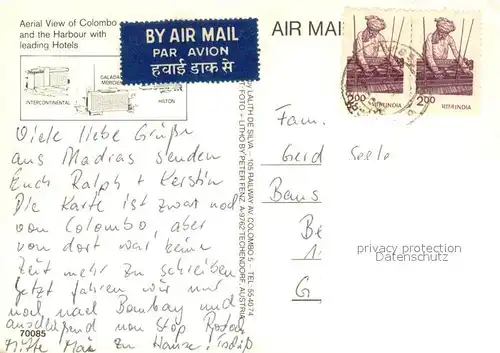 Aerial View of Colombo
and the Harbour with
leading Hotels
INTERCONTINENTAL
HILTON
BY AIR MAIL
PAR AVION
हवाई डाक से
AIR MAIL
2.00 भारत INDIA
2.00 भारत INDIA
Viele liebe Grüße
aus Madras senden
Euch Ralph + Kerstin
Die Karte ist zwar noch
von Colombo, aber
von dort war keine
Zeit mehr zu schreiben
Jetzt fahren wir nur
noch nach Bombay und
anschließend von Stop
Mitte Mai zu Hause.
70085
by LALITH DE SILVA - 105 RAILWAY AV. COLOMBO 5 - TEL. 554074
FOTO + LITHO BY PETER FENZ, A-9762 TECHENDORF, AUSTRIA
Fam.
Gerd Seele
Be
1
G
privacy protection
Datenschutz